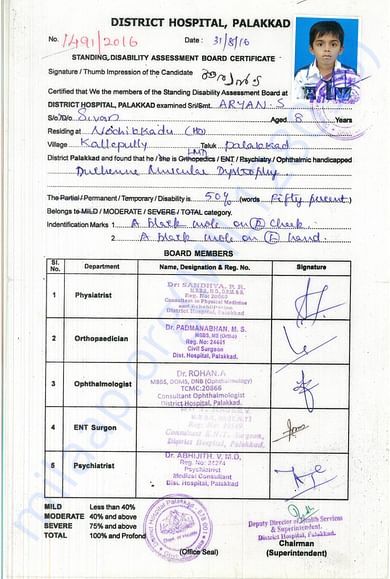 DISTRICT HOSPITAL, PALAKKAD
No. 1491/2016 Date : 31/8/16
STANDING DISABILITY ASSESSMENT BOARD CERTIFICATE
Signature / Thumb Impression of the Candidate
Certified that We the members of the Standing Disability Assessment Board at
DISTRICT HOSPITAL, PALAKKAD examined Sri/Smt. ARYAN. S
S/o/D/o Sivan Aged 8 Years
Residing at (HO)
Village Kallepully Taluk Palakkad
LMD
District Palakkad and found that he / she is Orthopedics / ENT / Psychiatry / Ophthalmic handicapped
Duchenne Muscular Dystrophy.
The Partial / Permanent / Temporary / Disability is 50% (words Fifty percent)
Belongs to MILD / MODERATE / SEVERE / TOTAL category.
Indentification Marks 1 A black mole on (R) Cheek.
2 A black mole on (L) hand.
BOARD MEMBERS
Sl. No. Department Name, Designation & Reg. No. Signature
1 Physiatrist Dr. SANDHYA, P. R.
Reg. No:
Consultant in Physical Medicine
and Rehabilitation
District Hospital, Palakkad
2 Orthopaedician Dr. PADMANABHAN, M. S.
MBBS, MS (Ortho)
Reg. No: 24461
Civil Surgeon
Dist. Hospital, Palakkad.
3 Ophthalmologist Dr. ROHAN.A
MBBS, DOMS, DNB (Ophthalmology)
TCMC:20866
Consultant Ophthalmologist
District Hospital, Palakkad.
4 ENT Surgon
Reg. No:
Consultant E.N.T. Surgeon,
District Hospital, Palakkad.
5 Psychiatrist Dr. ABHIJITH. V, M.D,
Reg. No: 24274
Psychiatrist
Medical Consultant
Dist. Hospital, Palakkad
MILD Less than 40%
MODERATE 40% and above
SEVERE 75% and above
TOTAL 100% and Profond
(Office Seal)
Deputy Director of Health Services
& Superintendent.
District Hospital, Palakkad.
Chairman
(Superintendent)
milaap.org